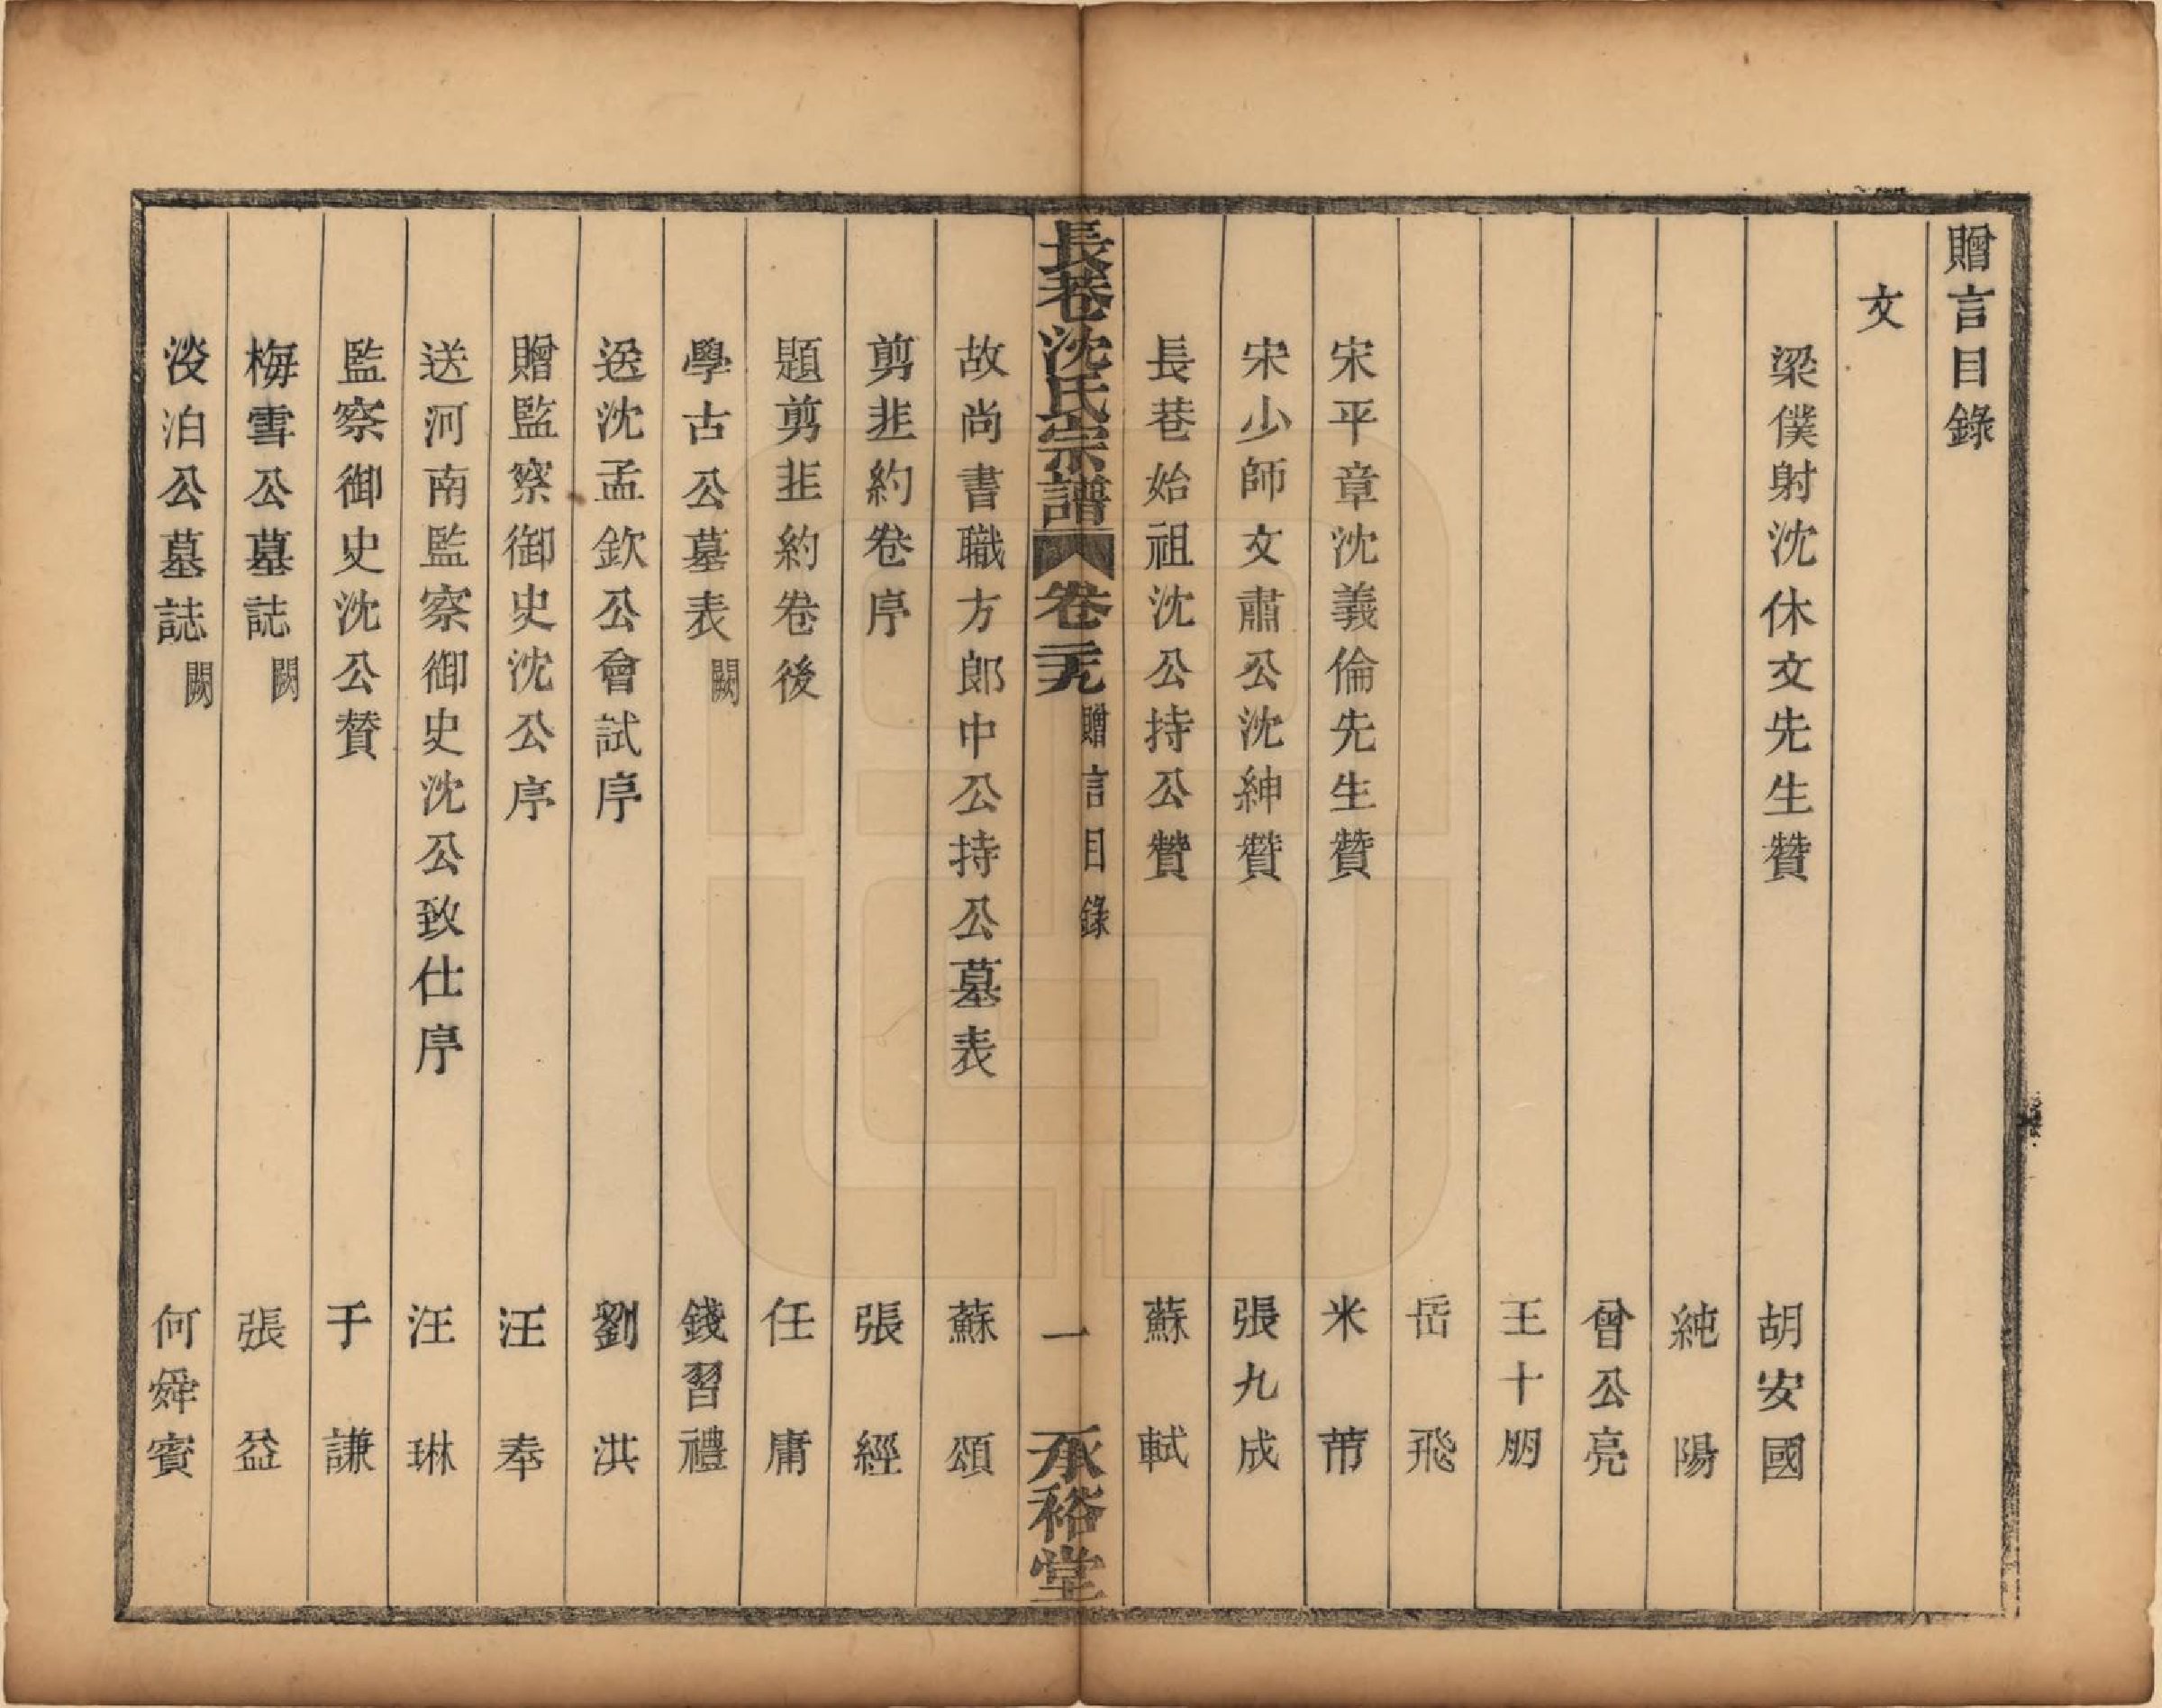 贈言目錄
文
梁僕射沈休文先生贊 胡安國
純陽
曾公亮
王十朋
岳飛
宋平章沈義倫先生贊 米芾
宋少師文肅公沈紳贊 張九成
長巷始祖沈公持公贊 蘇軾
長巷沈氏宗譜 卷二九 贈言目錄 一 承裕堂
故尚書職方郎中公持公墓表 蘇頌
剪韭約卷序 張經
題剪韭約卷後 任庸
學古公墓表 闕 錢習禮
送沈孟欽公會試序 劉洪
贈監察御史沈公序 汪奉
送河南監察御史沈公致仕序 汪琳
監察御史沈公贊 于謙
梅雪公墓誌 闕 張益
淡泊公墓誌 闕 何舜賓